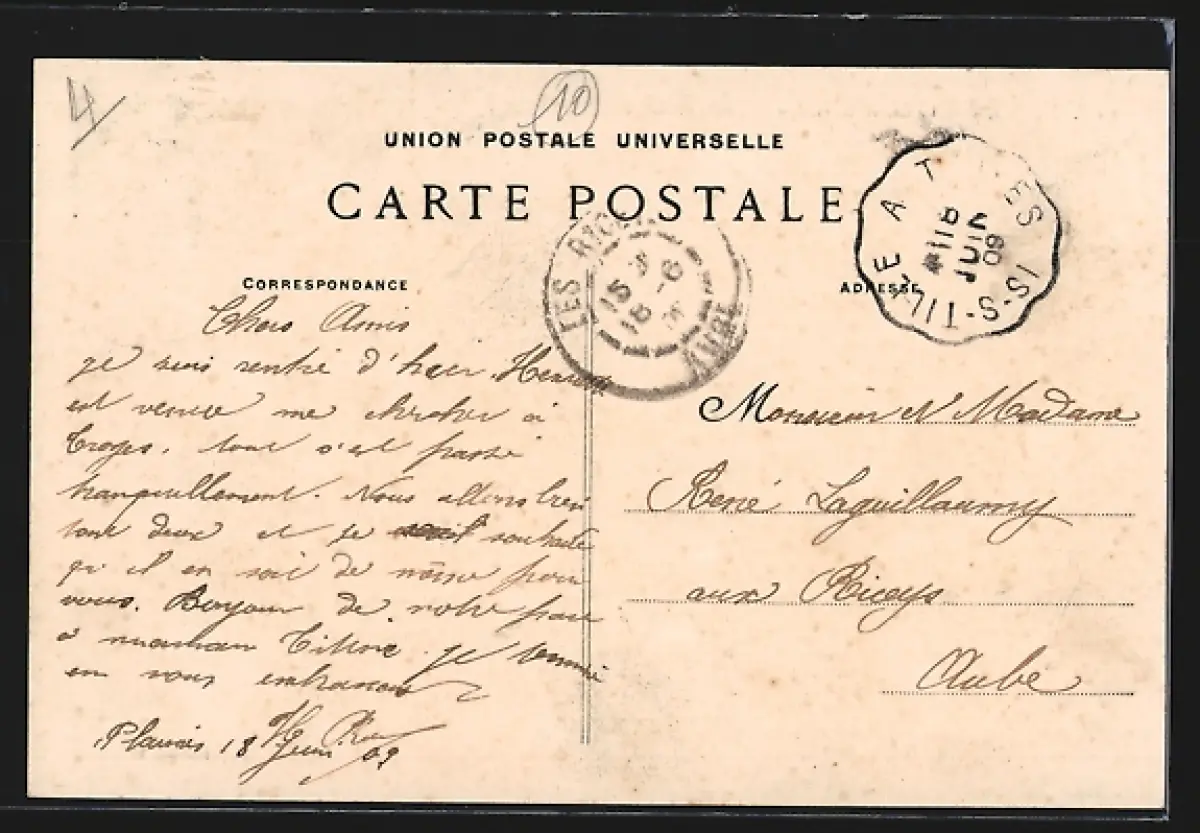 4
10
UNION POSTALE UNIVERSELLE
CARTE POSTALE
IS-S-TILLE A T ES
18
JUIN
09
LES RICE
AUBE
CORRESPONDANCE
ADRESSE
Chers Amis
je suis rentré d'hier.
est venue me chercher à
Troyes, tout s'est passé
tranquillement. Nous allons bien
tout deux et je souhaite
qu'il en soit de même pour
vous. Bonjour de notre part
à Je termine
en vous embrassant
18 Juin 09
Monsieur et Madame
René Laguillaumy
aux Riceys
Aube